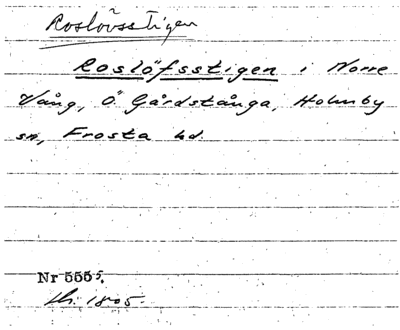 Roslövsstigen
Roslöfsstigen i Norre
Vång, Ö Gårdstånga, Holmby
sn, Frosta hd.
Nr 5555.
1805.